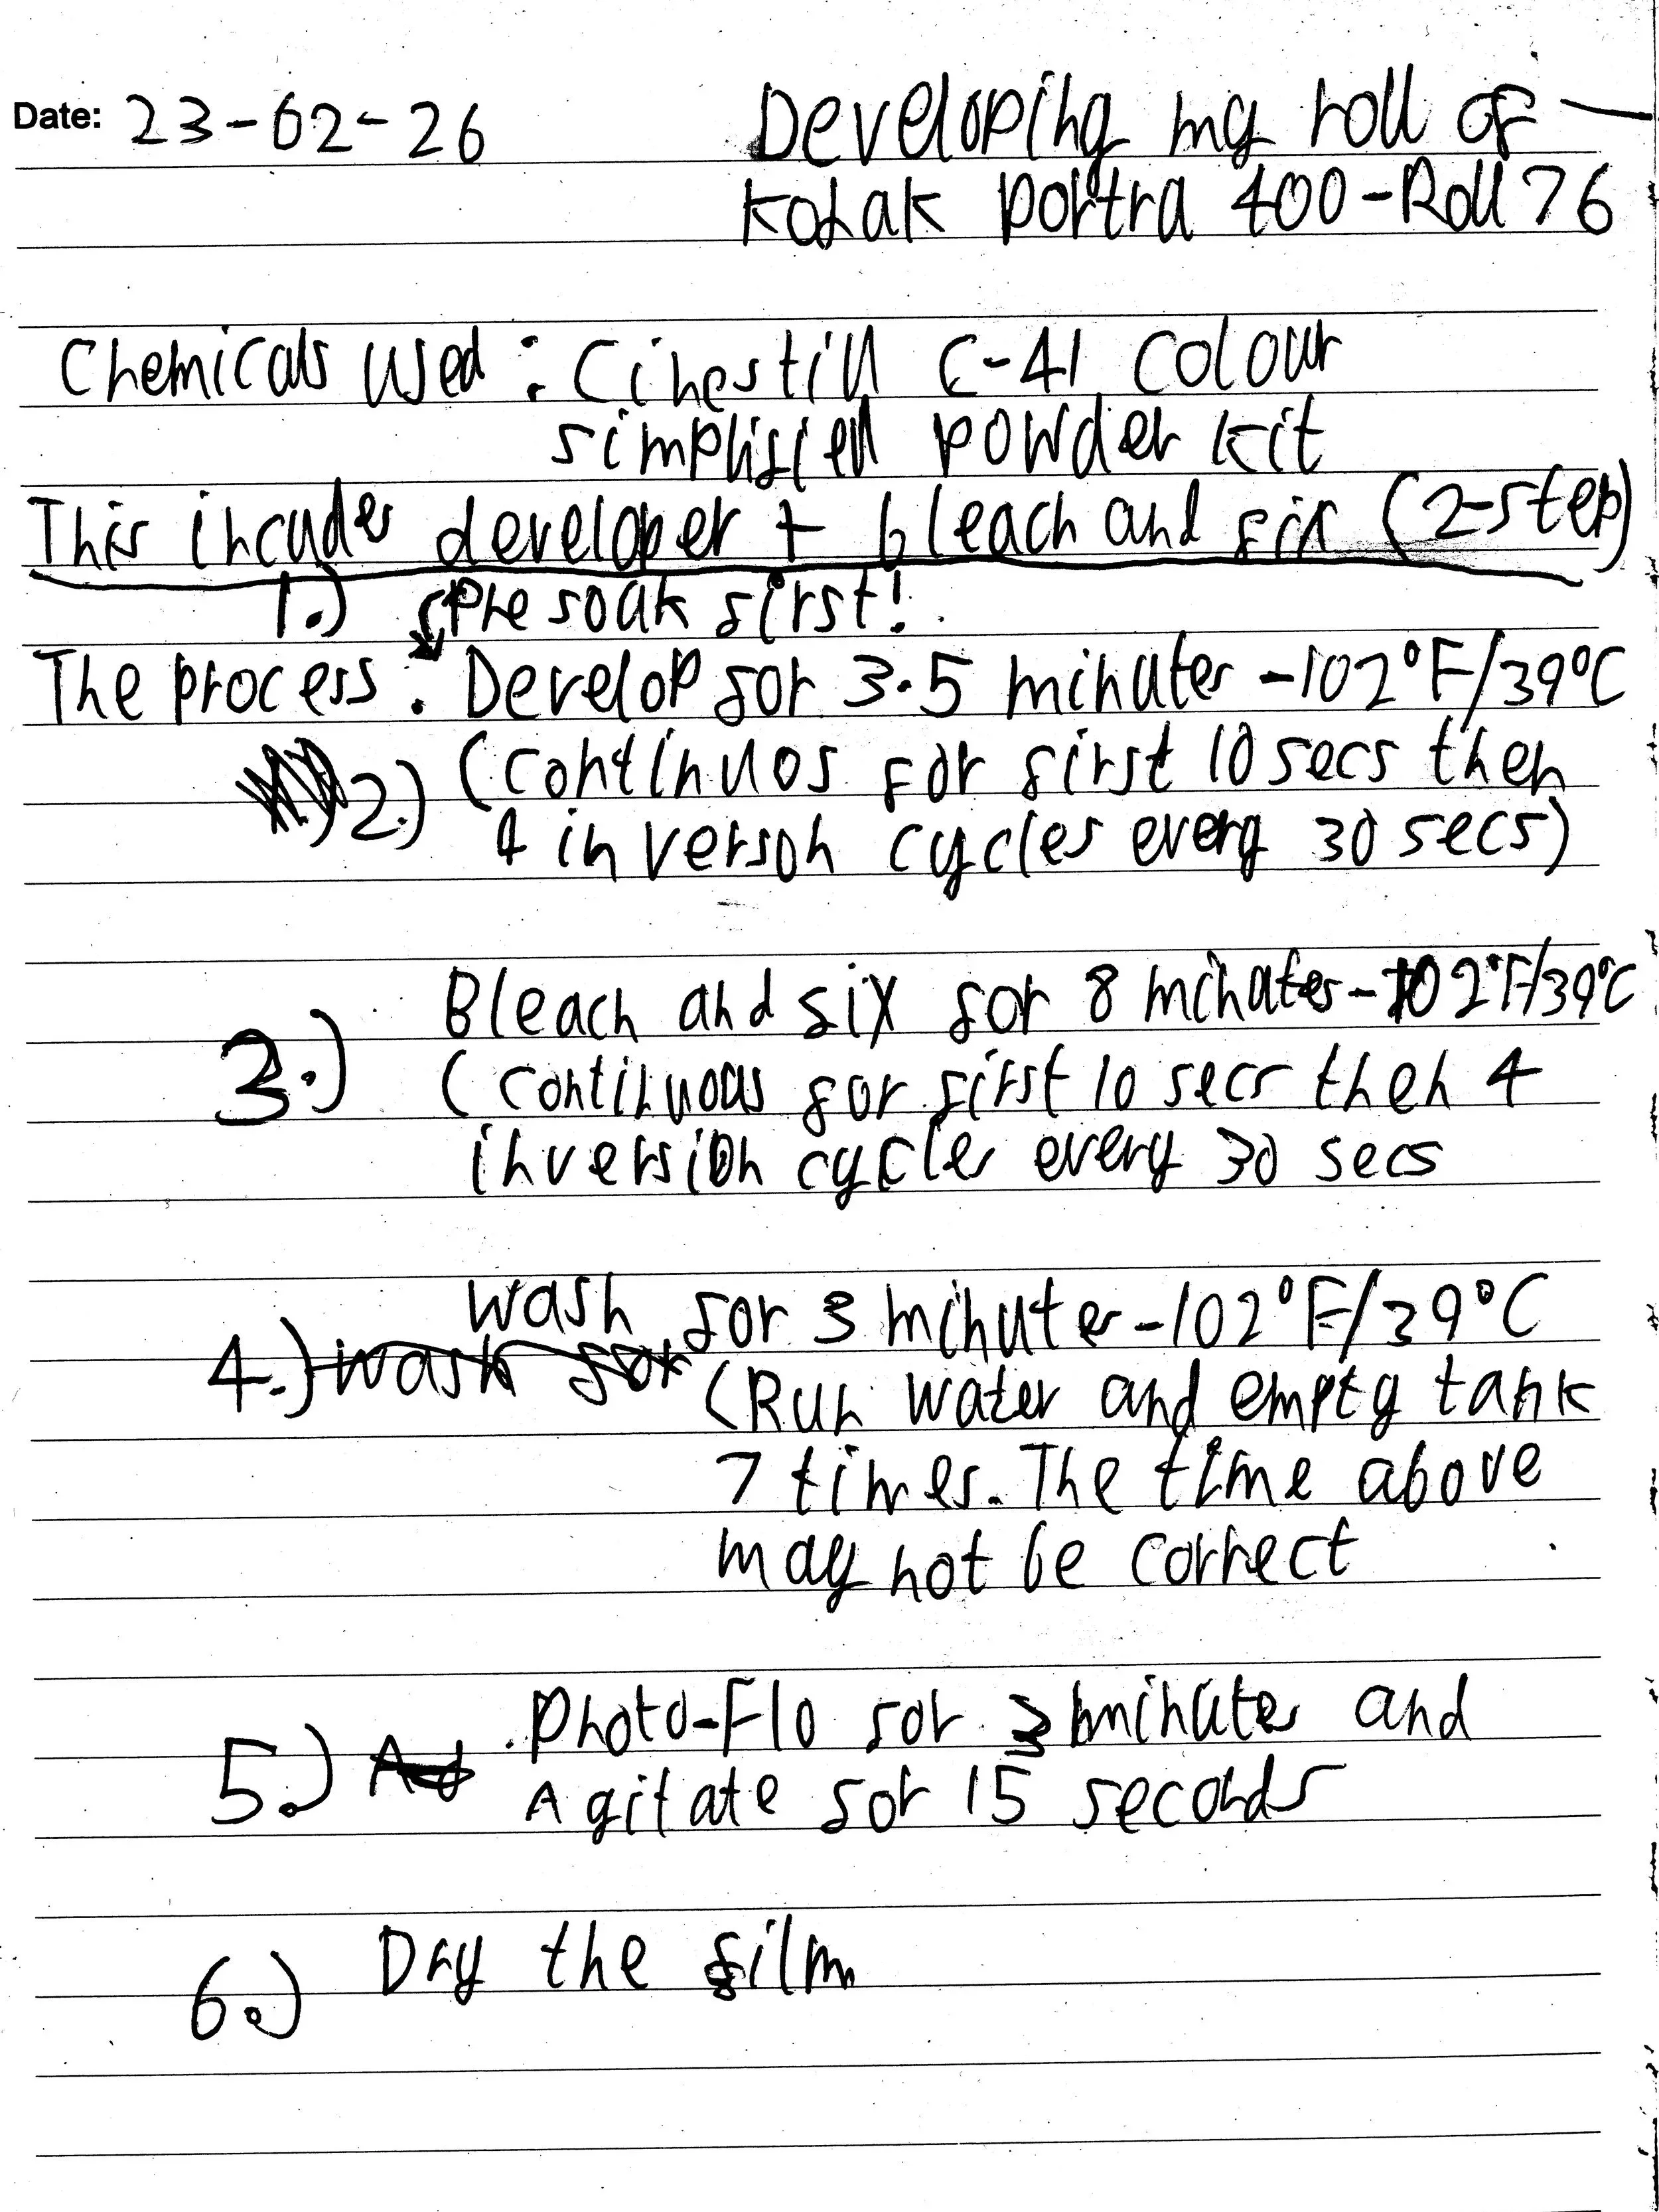 Date: 23-02-26
Developing my roll of
Kodak portra 400-Roll 76
Chemicals used: Cinestill C-41 Colour
simplified powder kit
This incudes developer + bleach and fix (2-step)
1.) Pre soak first!
The process: Develop for 3.5 minutes -102°F/39°C
2.) (continuos for first 10 secs then
4 inverson cycles every 30 secs)
Bleach and fix for 8 minutes-102°F/39°C
3.) (continuous for first 10 secs then 4
inversion cycles every 30 secs
wash for 3 minutes-102°F/39°C
4.) wash for (Run water and empty tank
7 times. The time above
may not be correct
Photo-Flo for 3 minutes and
5.) Agitate for 15 seconds
6.) Dry the film